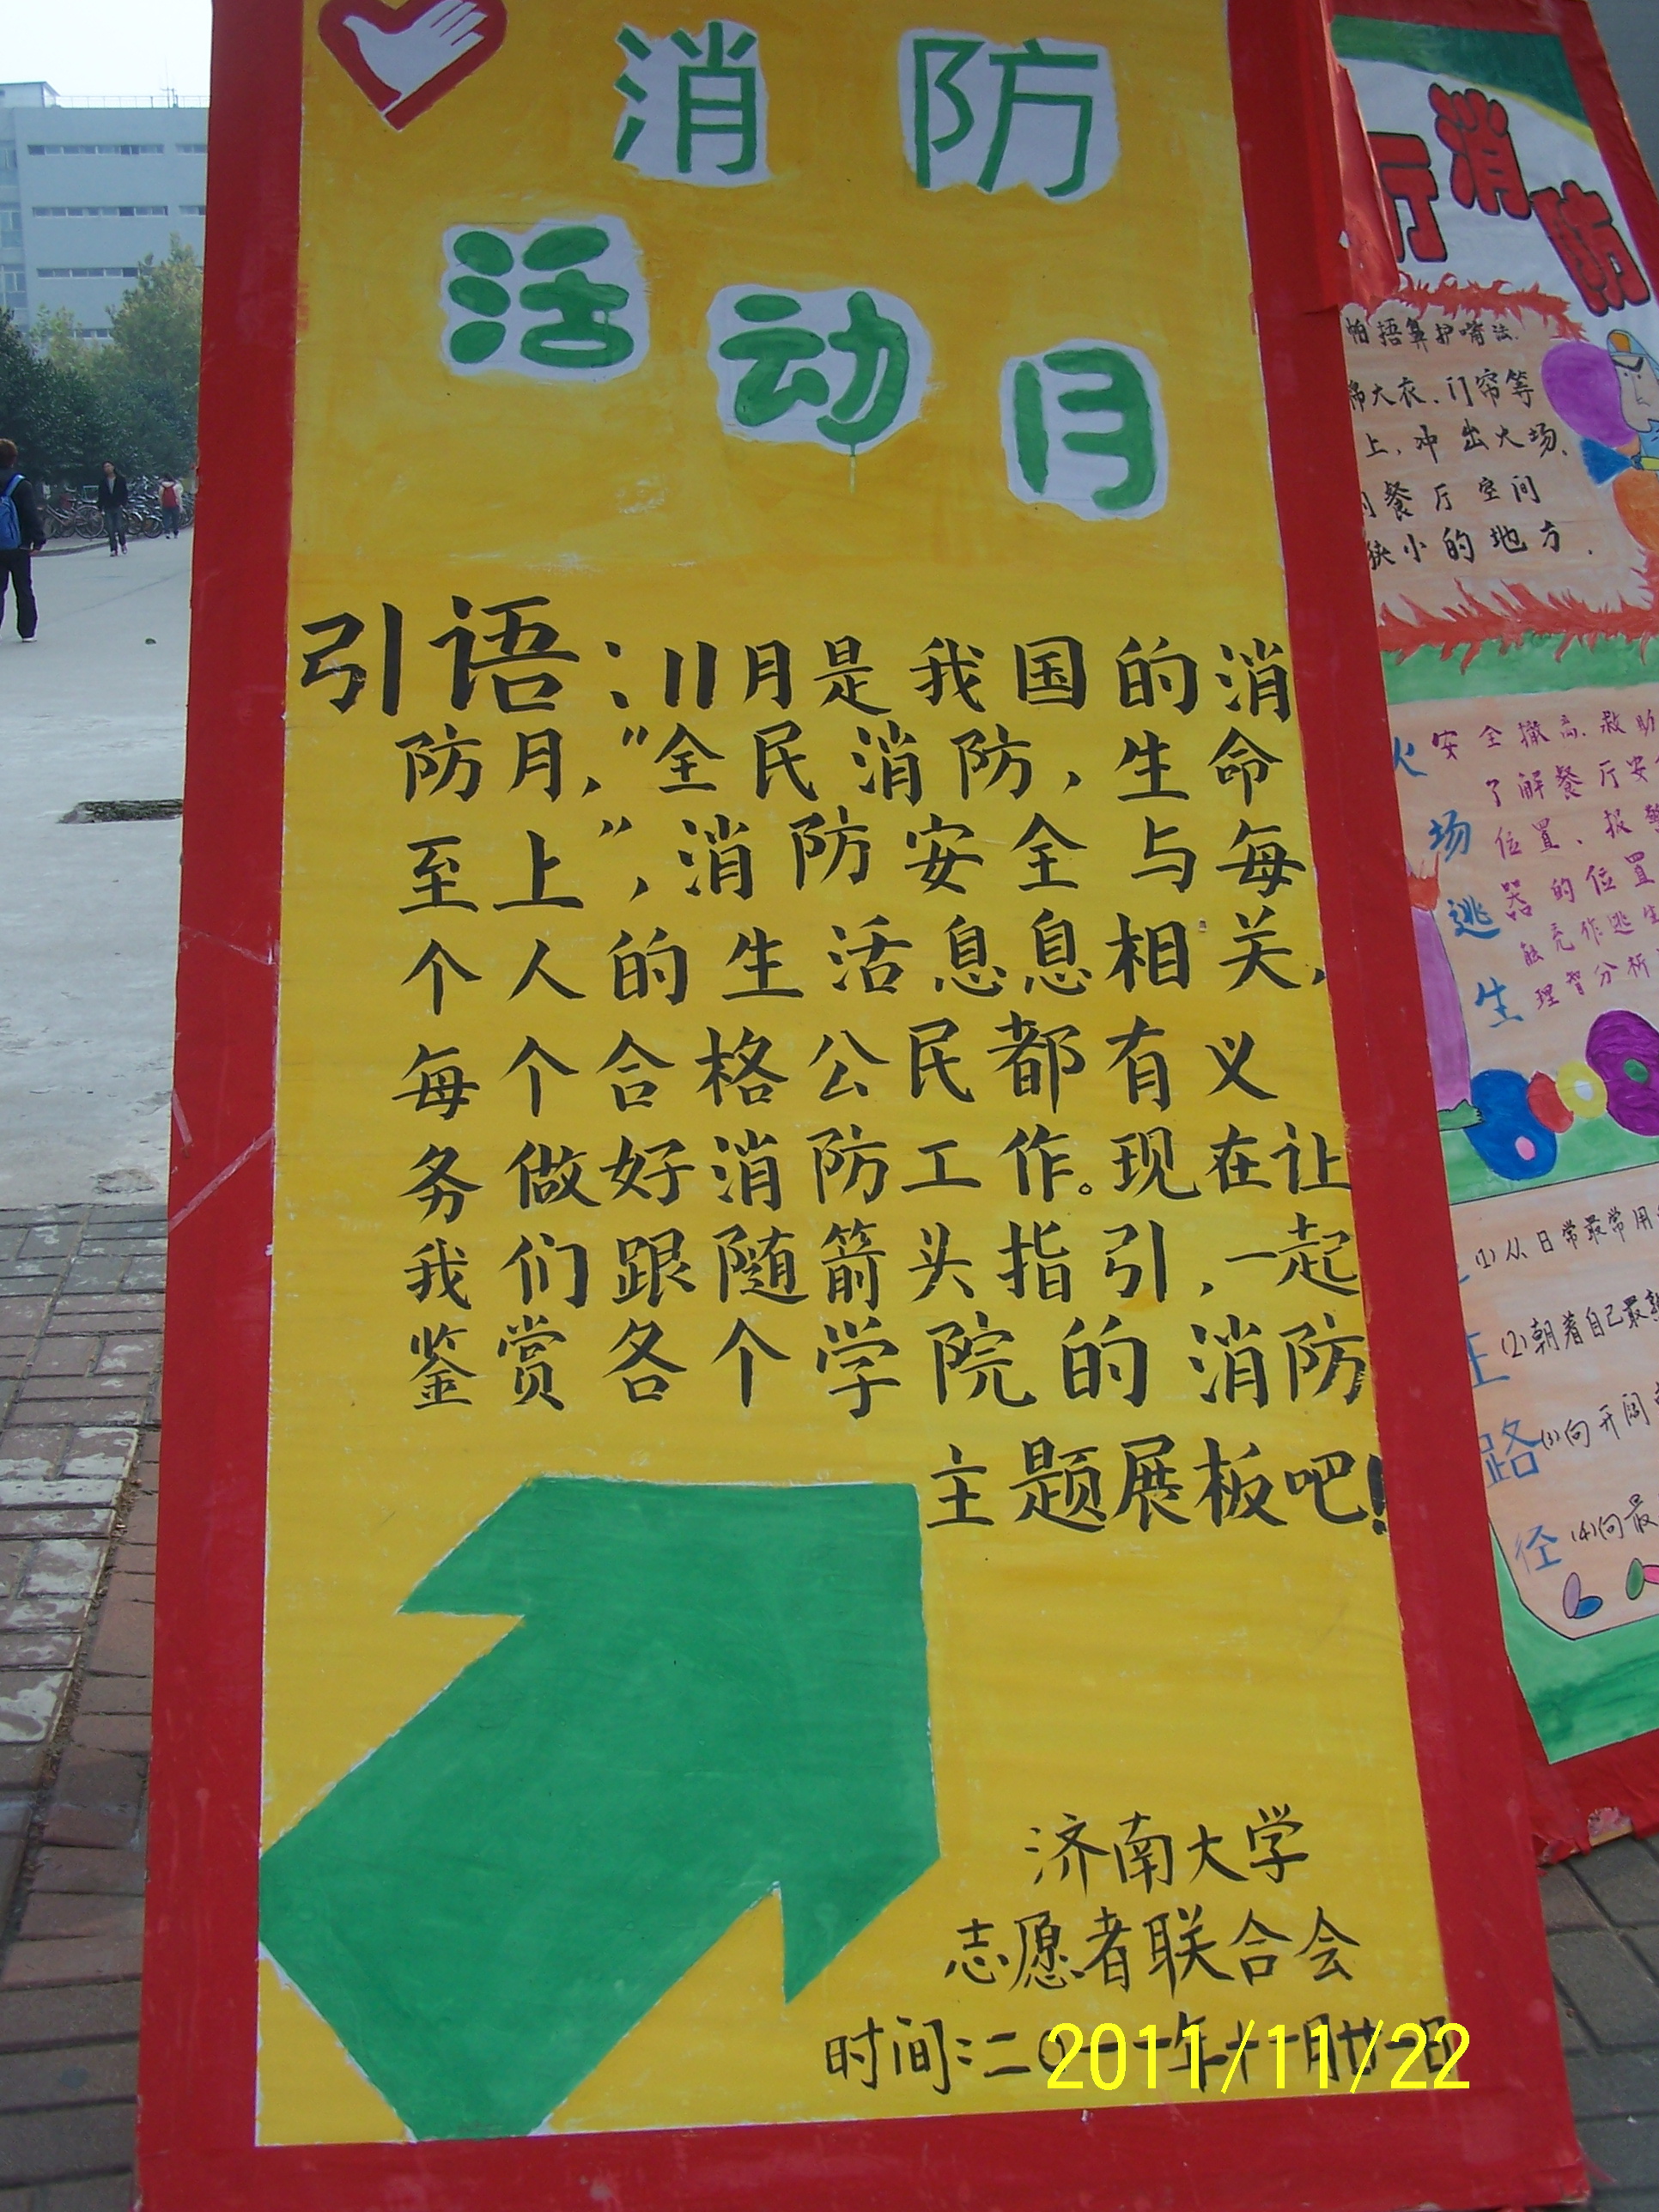 消 防
活动月
引语：11月是我国的消
防月，"全民消防，生命
至上"，消防安全与每
个人的生活息息相关，
每个合格公民都有义
务做好消防工作。现在让
我们跟随箭头指引，一起
鉴赏各个学院的消防
主题展板吧！
济南大学
志愿者联合会
时间：二〇一一年十一月廿一日
2011/11/22
厅消防
帕捂鼻护嘴法.
棉大衣、门帘等
上，冲出火场、
餐厅空间
狭小的地方.
火场逃生
安全撤离、救助
了解餐厅安
位置、报警
器的位置
能充作逃生
理智分析
路径
(1)从日常最常用
(2)朝着自己最熟
(3)向开阔
(4)向最